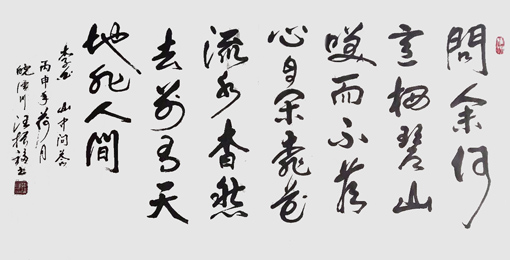 問余何
意栖碧山
咲而不答
心自闲桃花
流水杳然
去別有天
地非人間
李白 山中問答
丙申年荷月
皖川汪书